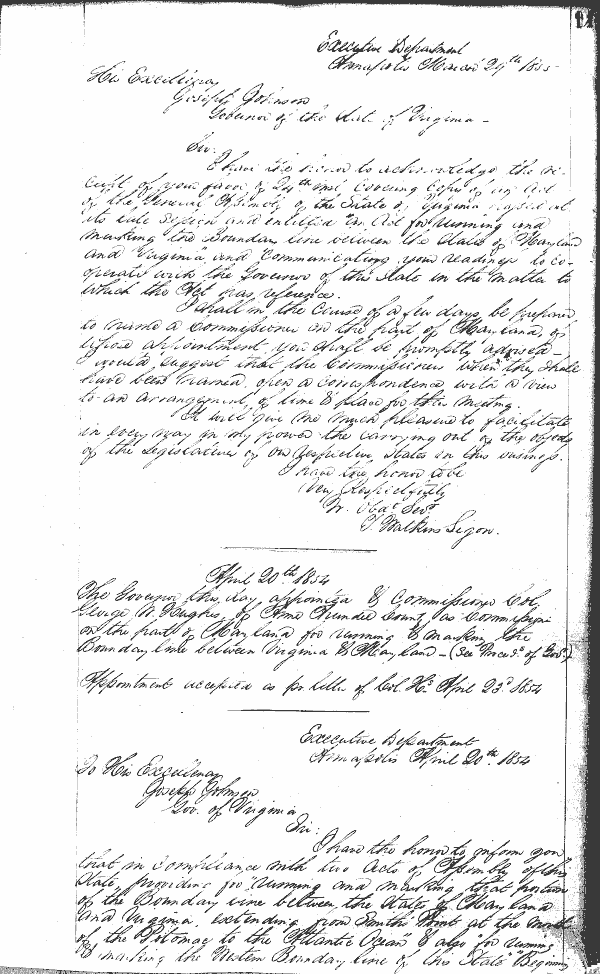 Executive Department
Annapolis March 29th 185
His Excellency
Joseph Johnson
Governor of the State of Virginia -
Sir:
I have the honor to acknowledge the re-
ceipt of your favor of 24th inst. covering Copy of an Act
of the General Assembly of the State of Virginia passed at
its late Session and entitled "An Act for running and
marking the Boundary line between the States of Maryland
and Virginia, and Communicating your readiness to co-
operate with the Governor of this State in the matter to
which the Act has reference.
I shall in the course of a few days be prepared
to name a Commissioner on the part of Maryland, of
whose appointment you shall be promptly advised -
I would suggest that the Commissioners when they shall
have been named open a correspondence with a view
to an arrangement of time & place for their meeting.
It will give me much pleasure to facilitate
in every way in my power the carrying out of the objects
of the Legislatures of our respective States in this business.
I have the honor to be
Very Respectfully
Yr. Obdt. Servt.
T. Watkins Ligon.
April 20th 1854
The Governor this day appointed & Commissioned Col.
George W. Hughes, of Anne Arundel County, as Commissioner
on the part of Maryland for running & marking the
Boundary line between Virginia & Maryland - (See Proceds. of Govr.)
Appointment accepted as pr. letter of Col. H. April 23d 1854
Executive Department
Annapolis April 20th. 1854
To His Excellency
Joseph Johnson
Gov. of Virginia
Sir:
I have the honor to inform you
that in compliance with two Acts of Assembly of this
State, providing for "running and marking that portion
of the Boundary line between the States of Maryland
and Virginia, extending from Smith's Point at the mouth
of the Potomac to the Atlantic Ocean & also for running
& marking the Western Boundary line of this State "Beginning